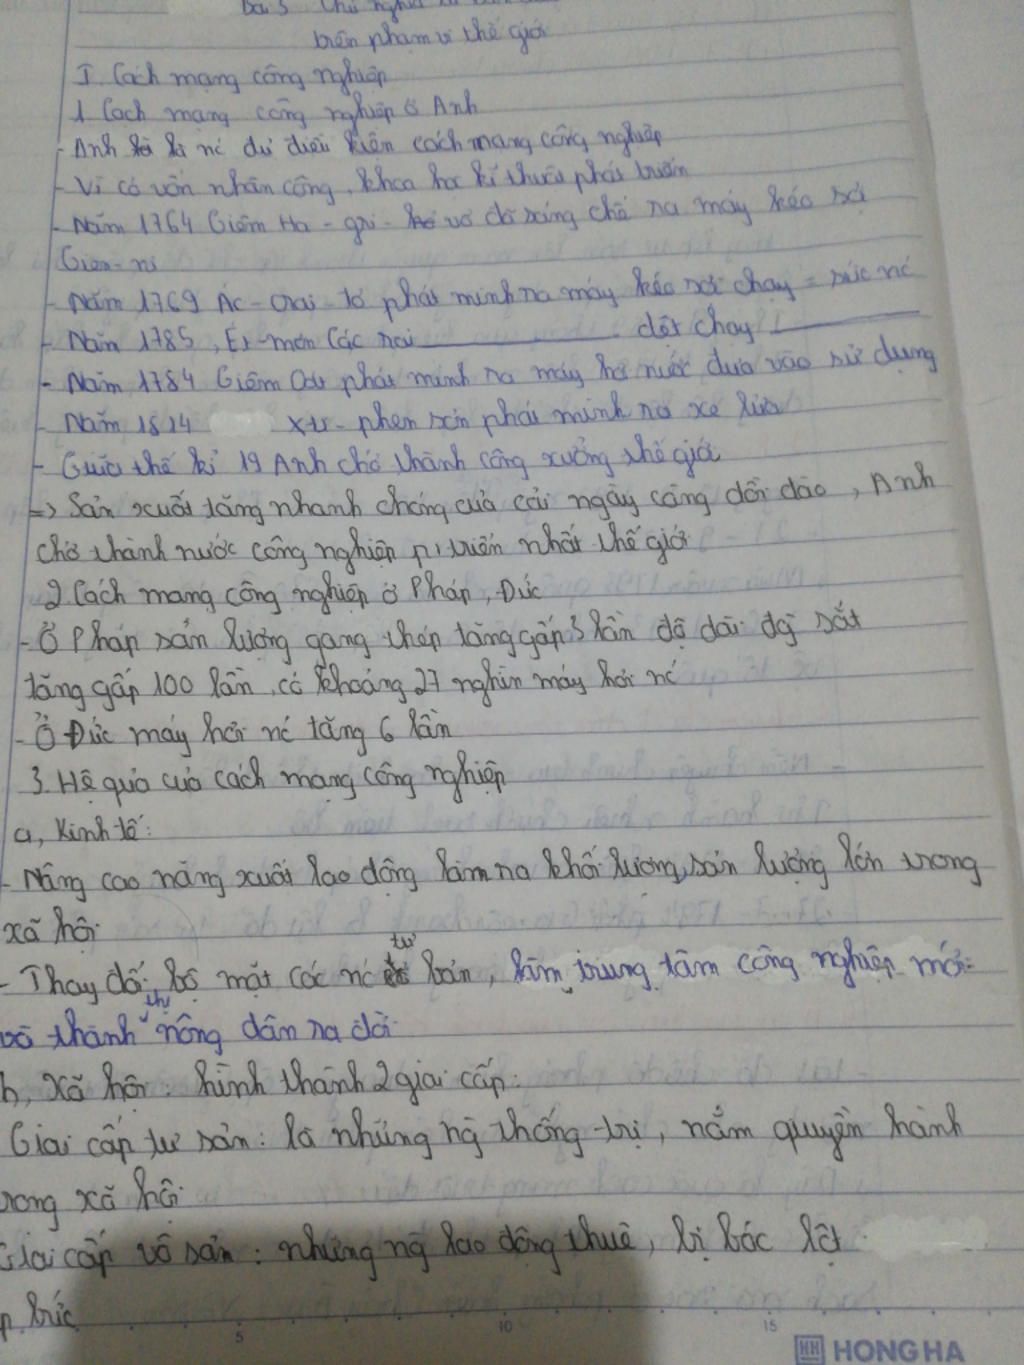 Bài 3 Chủ nghĩa
trên phạm vi thế giới
I Cách mạng công nghiệp
1 Cách mạng công nghiệp ở Anh
- Anh là nc đủ điều kiện cách mạng công nghiệp
- Vì có vốn nhân công, khoa học kĩ thuật phát triển
- Năm 1764 Giêm Ha - gri - vơ đã sáng chế ra máy kéo sợi
Gien-ni
- Năm 1769 Ác-crai-tơ phát minh ra máy kéo sợi chạy = sức nc
- Năm 1785, Ét-mơn Các rai ——— dệt chạy ———
- Năm 1784 Giêm Oát phát minh ra máy hơi nước đưa vào sử dụng
- Năm 1814 Xti-phen sơn phát minh ra xe lửa
- Giữa thế kỉ 19 Anh chở thành công xưởng thế giới
=> Sản xuất tăng nhanh chóng của cải ngày càng dồi dào, Anh
chở thành nước công nghiệp p,triển nhất thế giới
2 Cách mạng công nghiệp ở Pháp, Đức
- Ở Pháp sản lượng gang thép tăng gấp 3 lần độ dài đg sắt
tăng gấp 100 lần, có khoảng 27 nghìn máy hơi nc
- Ở Đức máy hơi nc tăng 6 lần
3. Hệ quả của cách mạng công nghiệp
a, Kinh tế:
- Nâng cao năng xuất lao động làm ra khối lượng, sản lượng lớn trong
xã hội
- Thay đổi bộ mặt các nc tư bản, làm trung tâm công nghiệp mới
và thành thị nông dân ra đời
b, Xã hội: hình thành 2 giai cấp:
Giai cấp tư sản: là những ng thống trị, nắm quyền hành
trong xã hội
Giai cấp vô sản: những ng lao động thuê, bị bóc lột
p bức
5 10 15
HH HONG HA